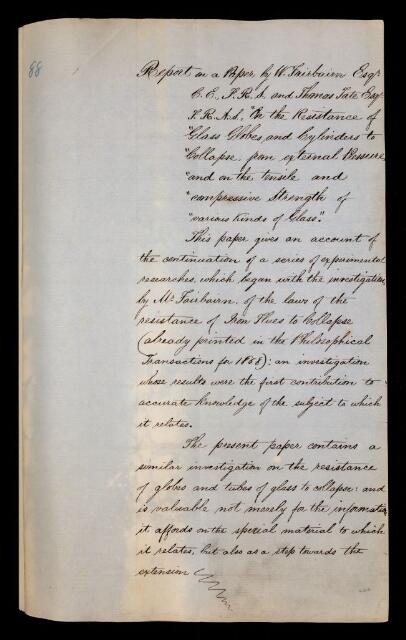 88
Report on a Paper by W. Fairbairn Esqr
C.E., F.R.S. and Thomas Tate Esqr
F.R.A.S., "On the Resistance of
"Glass Globes and Cylinders to
"Collapse from external Pressure
"and on the tensile and
"compressive Strength of
"various kinds of Glass".
This paper gives an account of
the continuation of a series of experimental
researches, which began with the investigation
by Mr Fairbairn, of the laws of the
resistance of Iron Flues to Collapse
(already printed in the Philosophical
Transactions for 1858): an investigation
whose results were the first contribution to
accurate knowledge of the subject to which
it relates.
The present paper contains a
similar investigation on the resistance
of globes and tubes of glass to collapse: and
is valuable not merely for the information
it affords on the special material to which
it relates, but also as a step towards the
extension